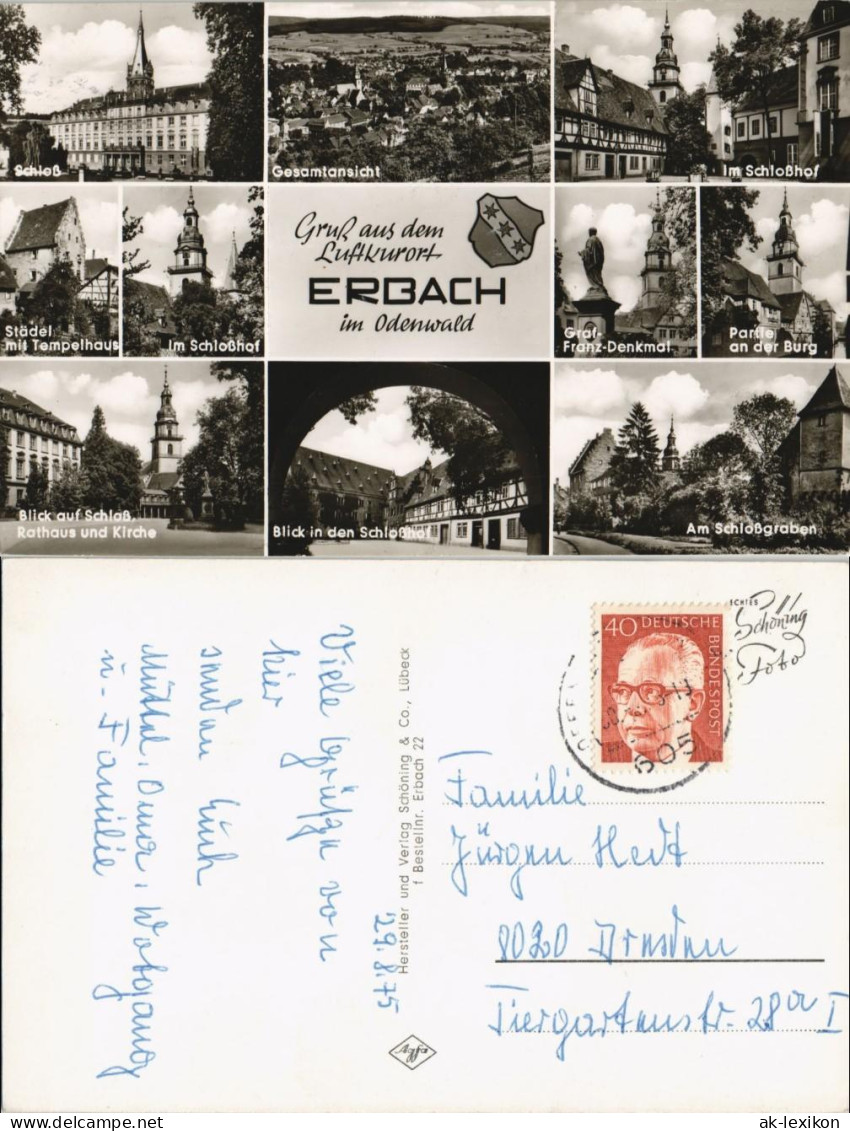 Schloß
Gesamtansicht
Im Schloßhof
Städel
mit Tempelhaus
Im Schloßhof
Gruß aus dem
Luftkurort
ERBACH
im Odenwald
Graf-
Franz-Denkmal
Partie
an der Burg
Blick auf Schloß,
Rathaus und Kirche
Blick in den Schloßhof
Am Schloßgraben
29.8.75
Viele Grüße von
hier
senden Euch
Muttel, Oma, Wolfgang
u. Familie
Hersteller und Verlag Schöning & Co., Lübeck
f Bestellnr. Erbach 22
Agfa
40 DEUTSCHE
BUNDESPOST
605
ECHTES
Schöning
Foto
Familie
Jürgen Hedt
8020 Dresden
Tiergartenstr. 28a I
ak-lexikon